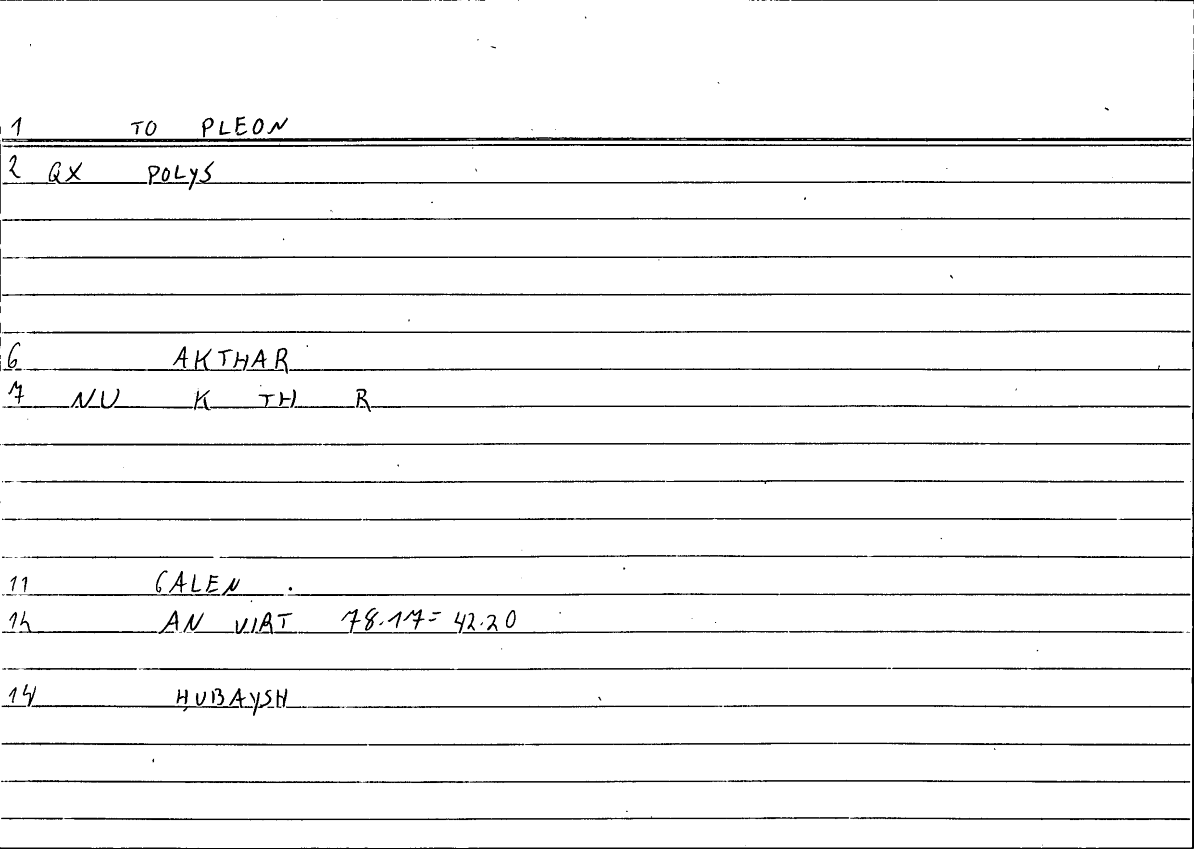 1 TO PLEON
2 QX POLYS
6 AKTHAR
7 NU K TH R
11 GALEN .
12 AN VIRT 78.17=42.20
14 ḤUBAYSH